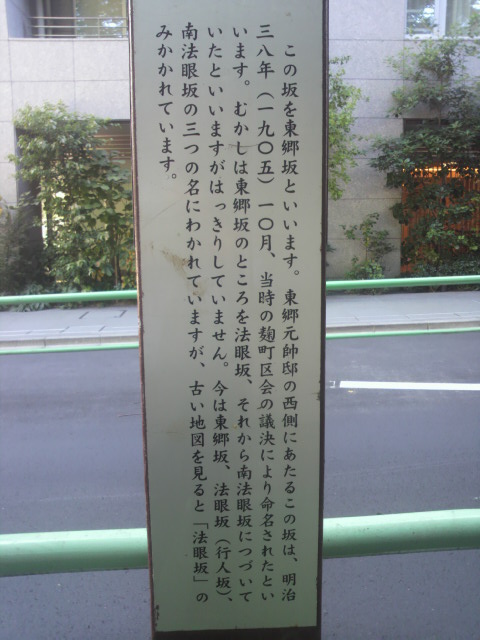 この坂を東郷坂といいます。東郷元帥邸の西側にあたるこの坂は、明治
三八年（一九〇五）一〇月、当時の麹町区会の議決により命名されたとい
います。むかしは東郷坂のところを法眼坂、それから南法眼坂につづいて
いたといいますがはっきりしていません。今は東郷坂、法眼坂（行人坂）、
南法眼坂の三つの名にわかれていますが、古い地図を見ると「法眼坂」の
みかかれています。